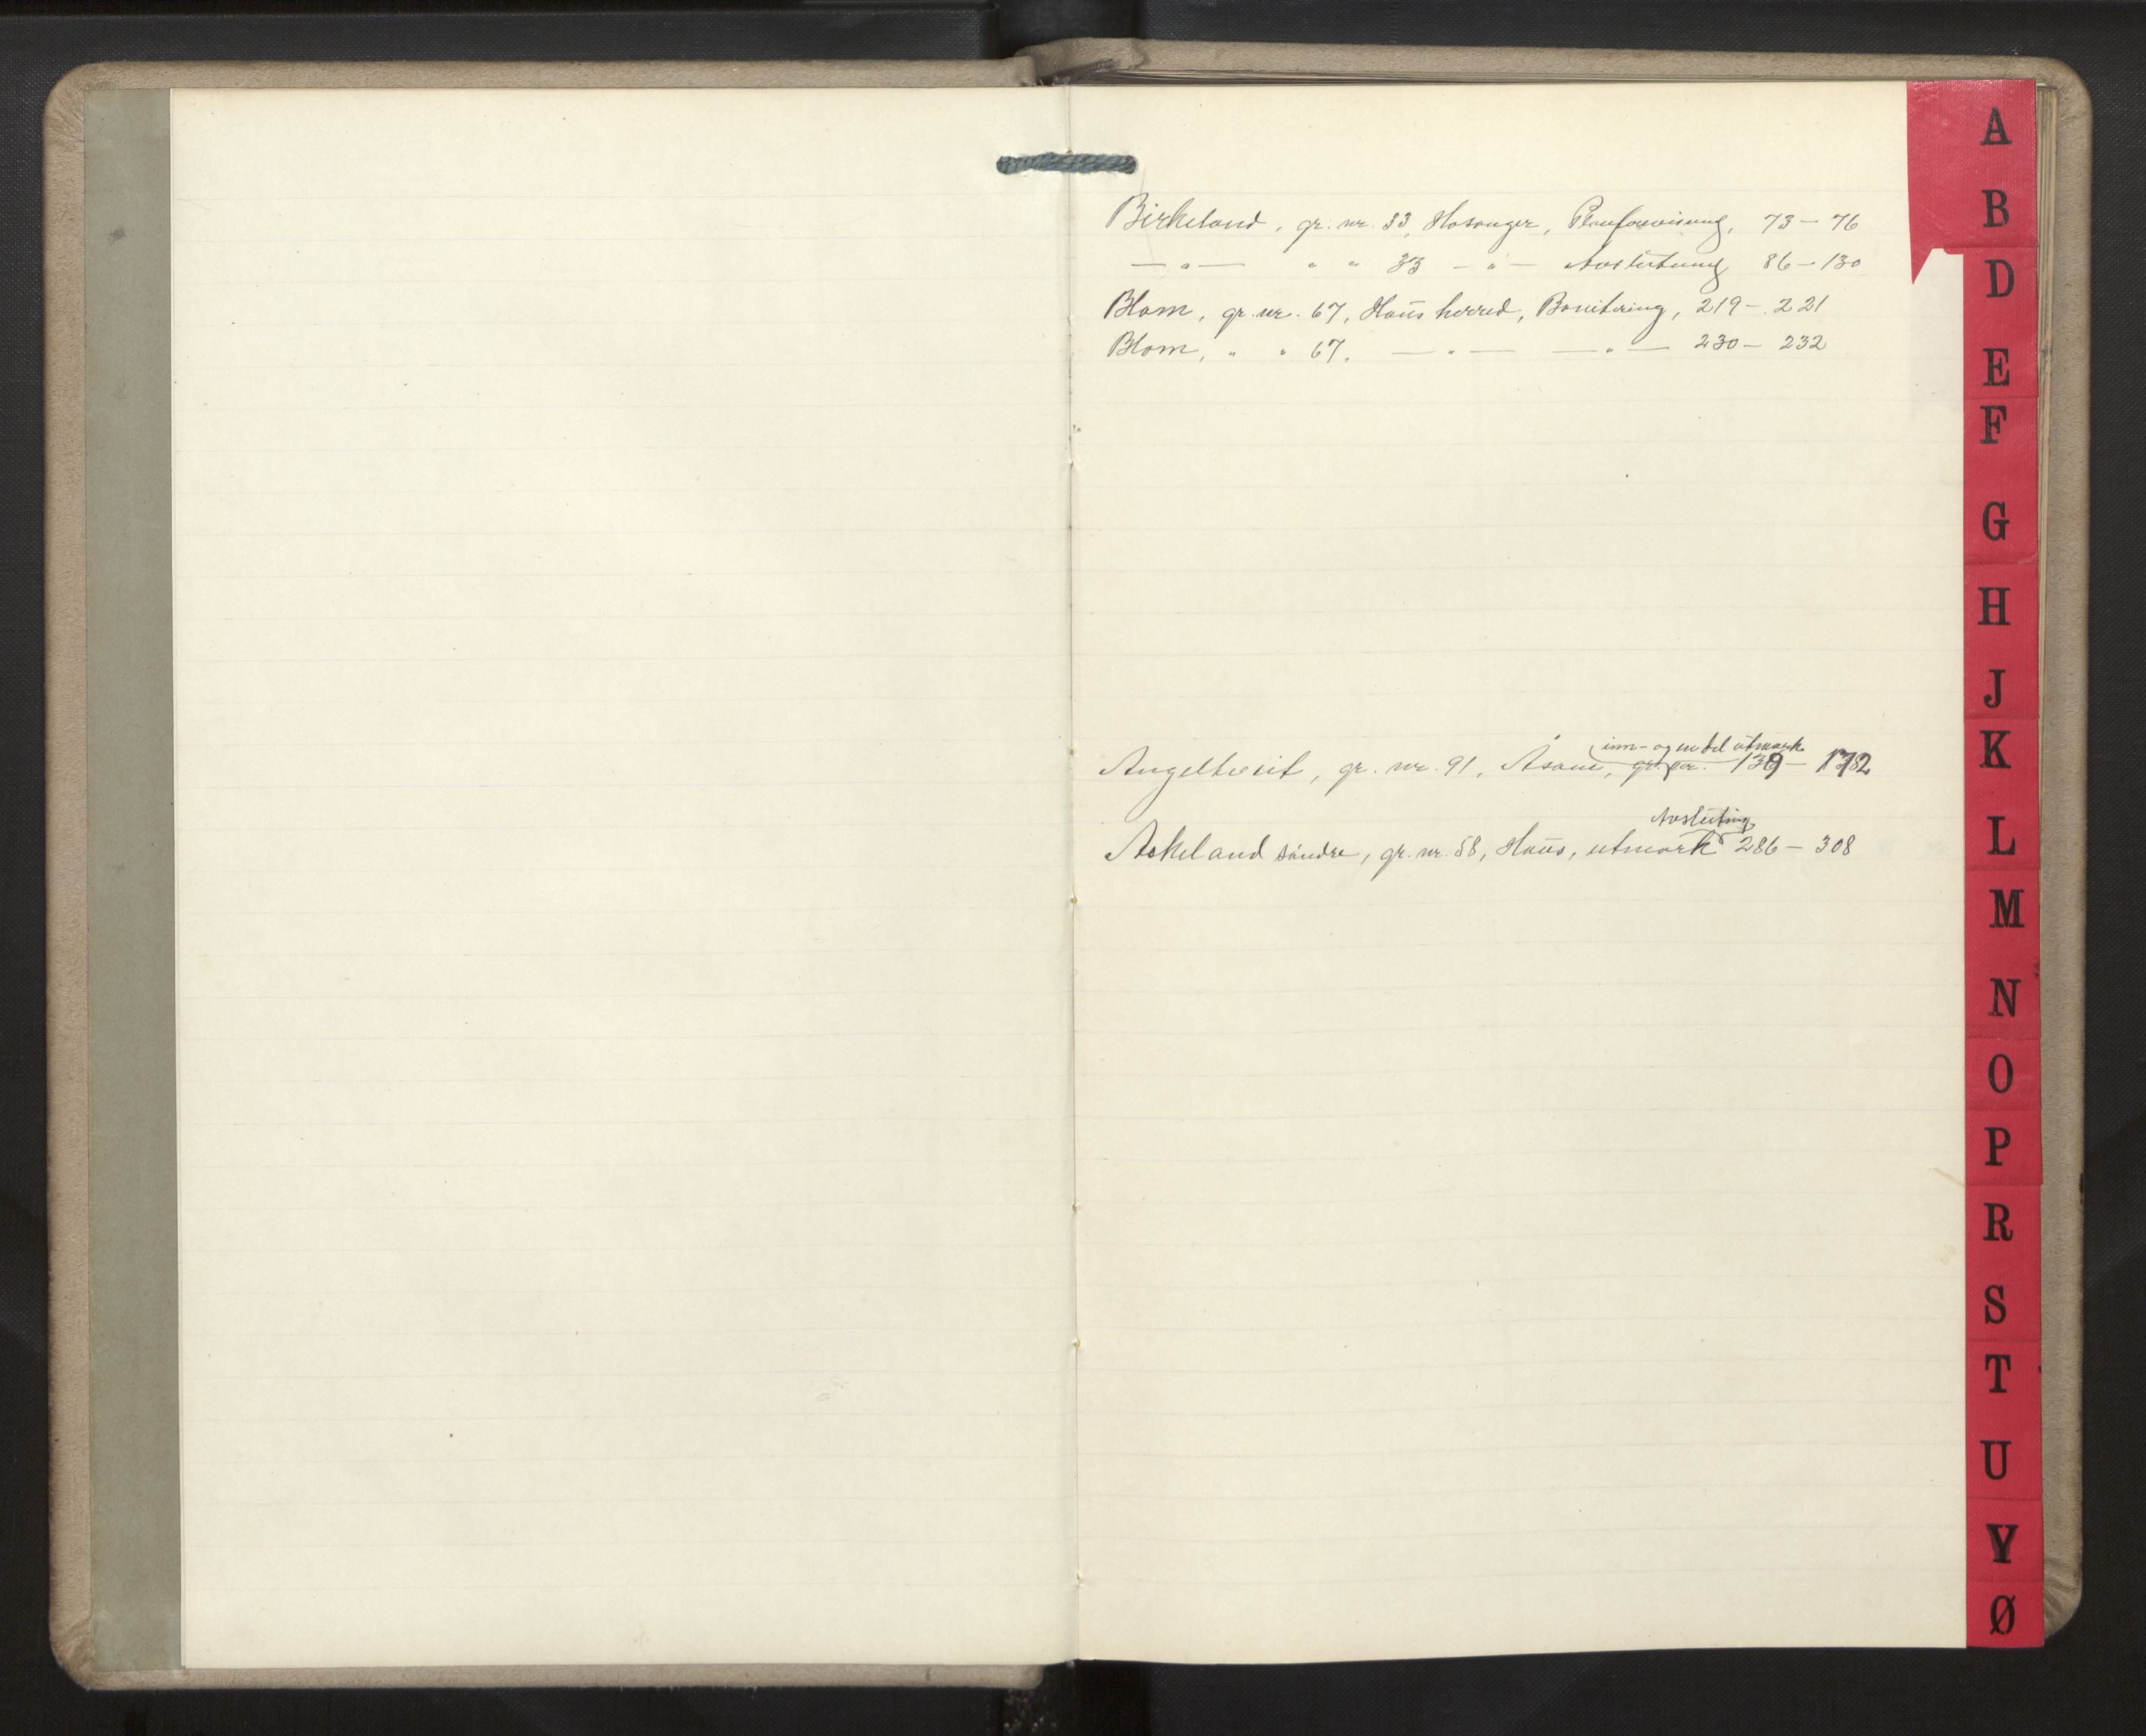 Birkeland, gr. nr. 33, Hosanger, Planforvisning, 73 – 76
— " — " " 33 — " — Avslutning 86 – 130
Blom, gr. nr. 67, Haus herred, Bonitering, 219 – 221
Blom, " " 67. — " — — " — 230 – 232
inn- og en del utmark
Angeltveit, gr. nr. 91, Åsane, 139 – 172
Avslutning
Askeland søndre, gr. nr. 58, Haus, utmark 286 – 308
A
B
D
E
F
G
H
J
K
L
M
N
O
P
R
S
T
U
Ø